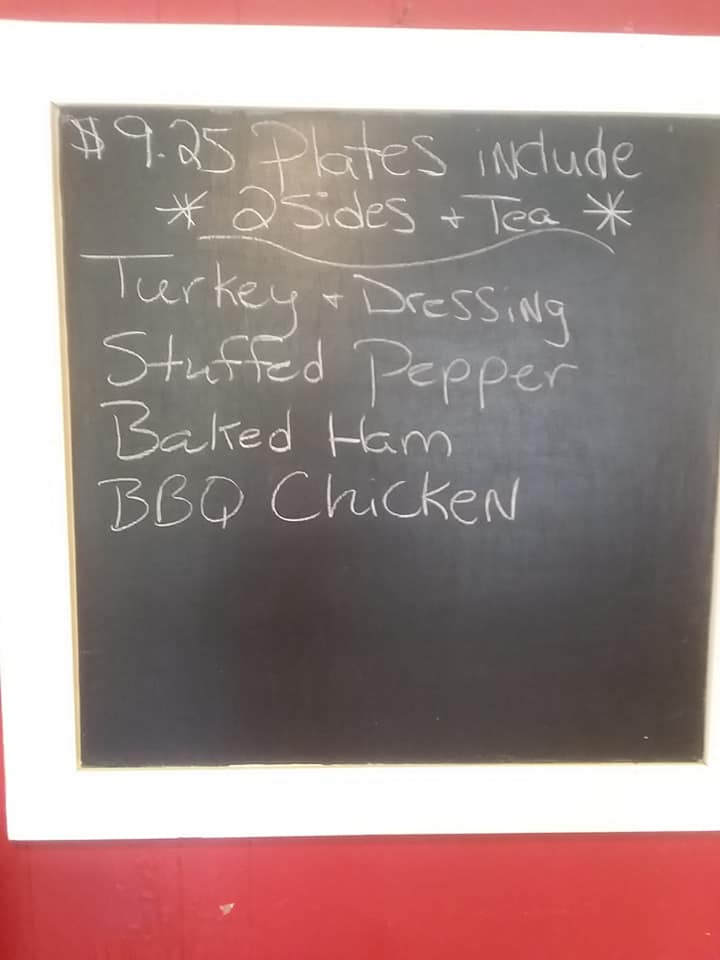 $9.25 Plates include
* 2 Sides + Tea *
Turkey + Dressing
Stuffed Pepper
Baked Ham
BBQ Chicken